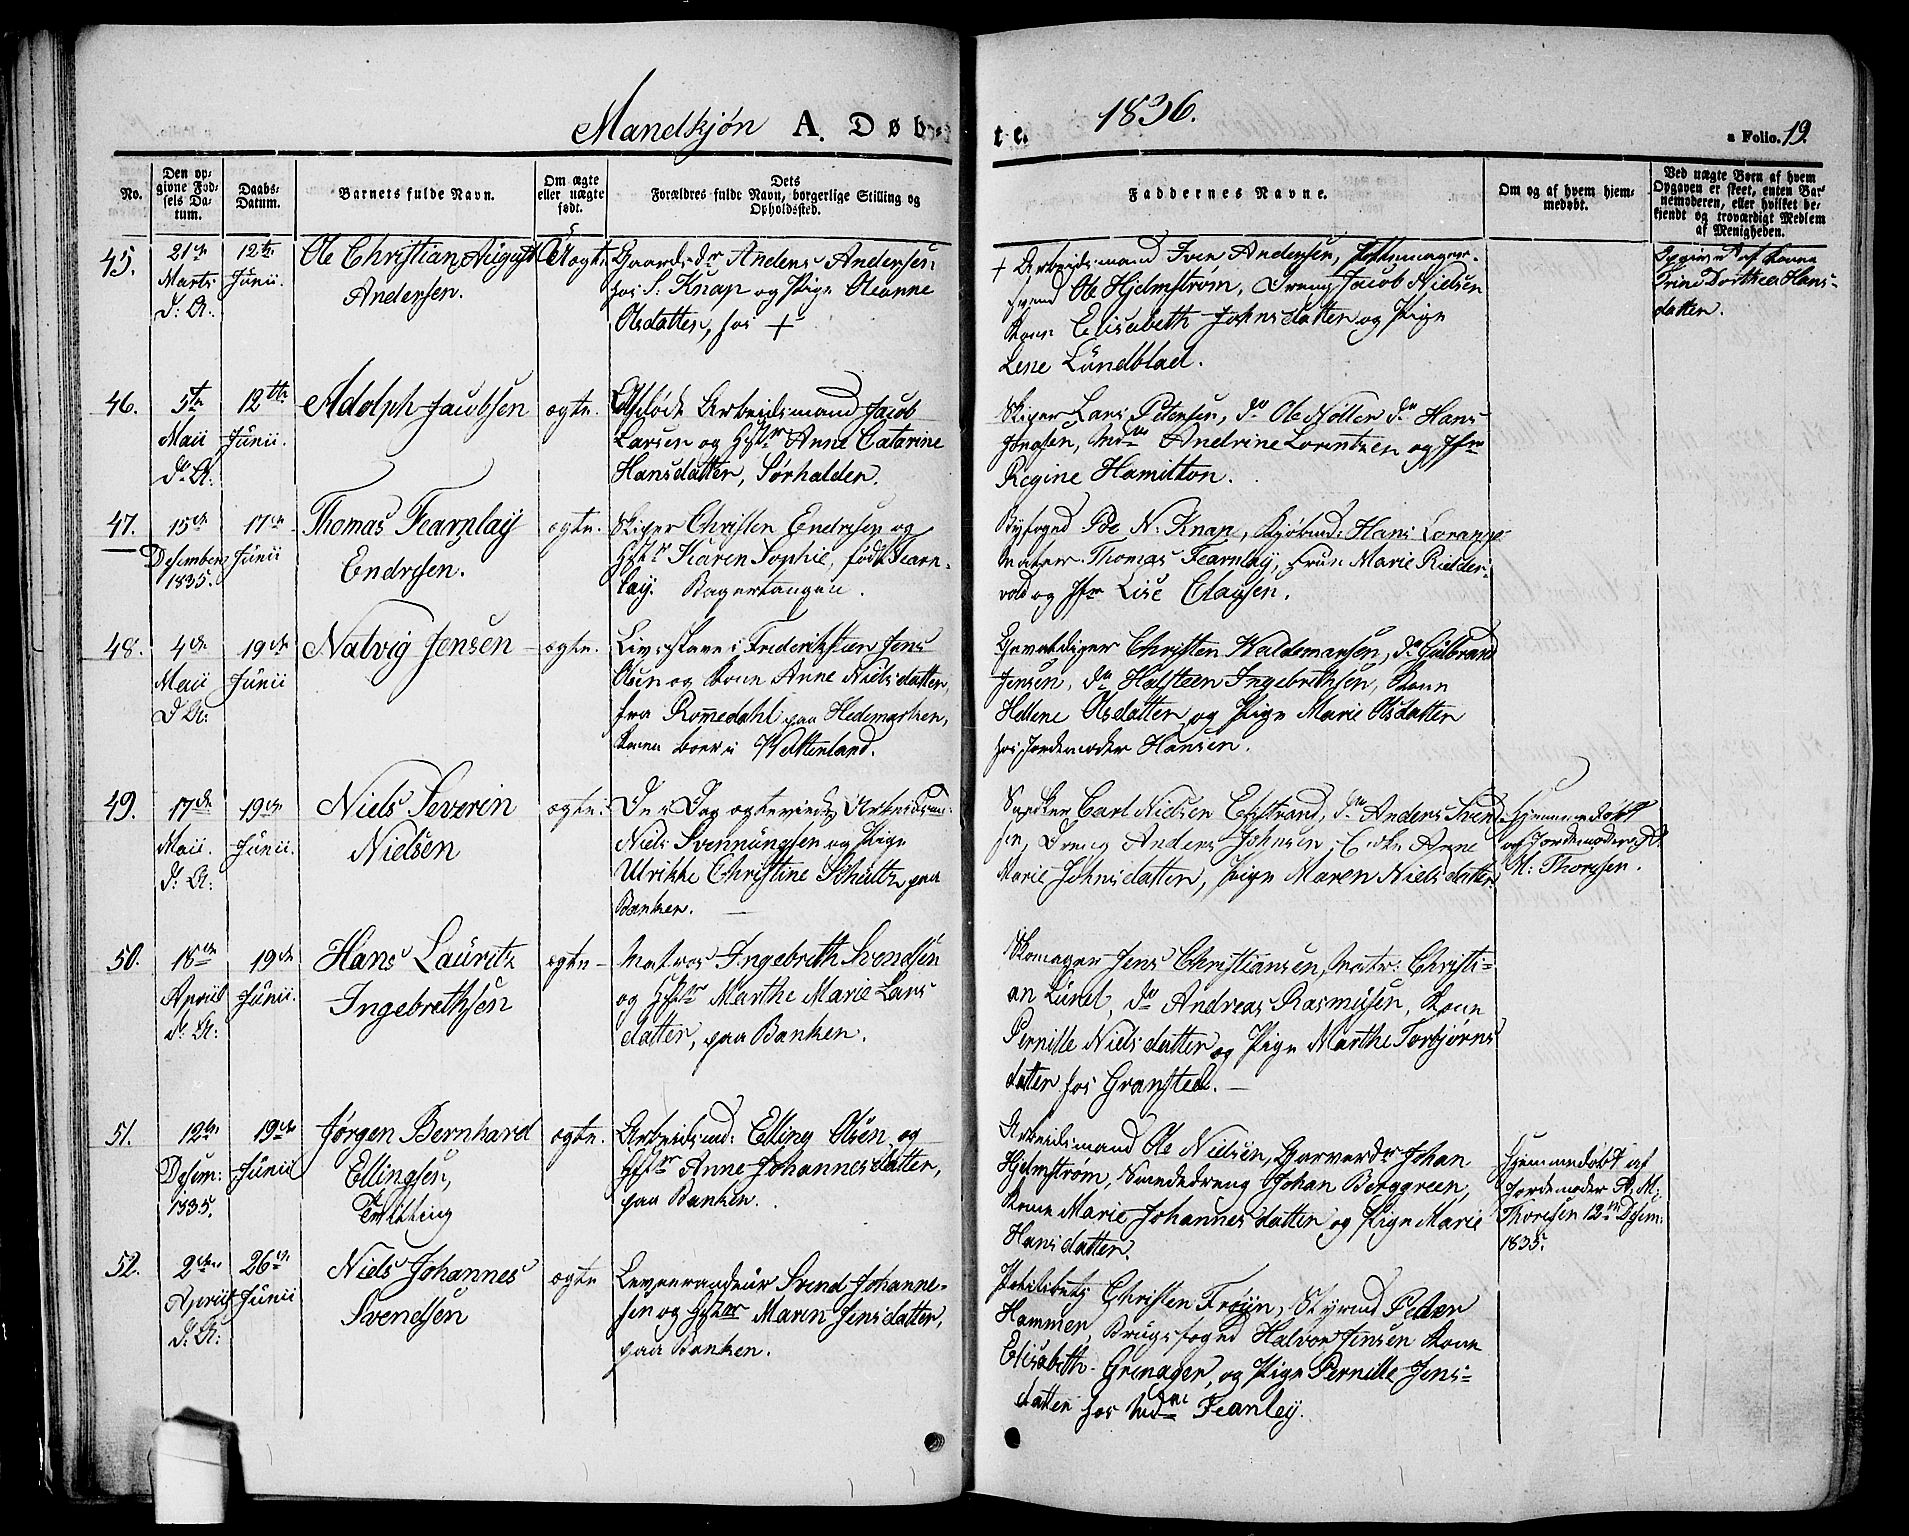 Mandkjøn A. Døbte. 1836.
a Folio. 19.
No.
Den op-
givne Fød-
sels Da-
tum.
Daabs-
Datum.
Barnets fulde Navn.
Om ægte
eller uægte
født.
Dets
Forældres fulde Navn, borgerlige Stilling og
Opholdssted.
Faddernes Navne.
Om og af hvem hjem-
medøbt.
Ved uægte Børn af hvem
Opgaven er skeet, enten Bar-
nemoderen, eller hvilket be-
kjendt og troværdigt Medlem
af Menigheden.
45.
21de
Marts
d: A:
12te
Junii.
Ole Christian August
Andersen.
Uægte
Gaardsdr Anders Andersen
hos S. Knap og Pige Oleanne
Olsdatter, hos +
+ Arbeidsmand Iver Andersen, Pottemager-
svend Ole Hjelmstrøm, Dreng Jacob Nielsen
Kone Elisabeth Johnsdatter og Pige
Lene Lundblad.
Opgivet af Kone
Trine Dorthea Hans-
datter.
46.
5te
Maii
d: A:
12te
Junii.
Adolph Jacobsen
ægte.
Arbeidsmand Jacob
Larsen og Hstr Anne Catarine
Hansdatter, Sørhalden.
Skiper Lars Petersen, do Ole Nøller do Hans
Jonasen, Md Andrine Lorintzen og Jfr
Regine Hamilton.
47.
15de
Desember
1835.
17de
Junii
Thomas Fearnlay
Endresen.
ægte.
Skiper Christen Endresen og
Hstr Karen Sophie, født Fearn-
lay. Bagertangen.
Byfoged Poe N. Knap, Kjøbmd: Hans Lorange
Maler Thomas Fearnlay, Frue Marie Ridder-
vold og Jfr Lise Clausen.
48.
4de
Maii
d: A:
19de
Junii
Natvig Jensen
ægte.
Livsslave i Frederiksten Jens
Olsen og Kone Anne Nielsdatter,
fra Romedahl paa Hedemarken,
Konen boer i Weltenland.
Gevaldiger Christen Waldemarsen, do Gulbrand
Jensen, do Halsteen Ingebrethsen, Kone
Hellene Olsdatter og Pige Marie Olsdatter
hos Jordemoder Hansen.
49.
17de
Maii.
d: A:
19de
Junii.
Niels Severin
Nielsen
ægte.
De i Dag ægteviede Arbeidsm:
Niels Svennungsen og Pige
Ulrikke Christine Schultz, paa
Banken.
Snedker Carl Nielsen Ekstrand, do Anders Svend-
sen, Dreng Anders Johnsen, Enke Anne
Marie Johnsdatter, Pige Maren Nielsdatter
Hjemmedøbt
af Jordemoder A.
M: Thoresen.
50.
18de
April
d: A:
19de
Junii.
Hans Lauritz
Ingebrethsen
ægte
Matros Ingebreth Svendsen
og Hstr Marthe Marie Lars
datter, paa Banken.
Skomager Jens Christiansen, Matr: Christi-
an Lund, do Andreas Rasmusen, Kone
Pernille Nielsdatter og Pige Marthe Torbjørns
datter hos Gransted.
51.
12te
Desem:
1835.
19de
Junii
Jørgen Bernhard
Ellingsen,
Tvilling
ægte.
Arbeidsmd: Elling Olsen og
Hstr Anne Johannesdatter,
paa Banken.
Arbeidsmand Ole Nielsen, Garverdr Johan
Hjelmstrøm, Smededreng Johan Berggreen,
Kone Marie Johannesdatter og Pige Marie
Hansdatter.
Hjemmedøbt af
Jordemoder A. M:
Thoresen 12te Desem:
1835.
52.
2den
April
d: A:
26de
Junii
Niels Johannes
Svendsen
ægte
Leverandeur Svend Johanne-
sen og Hstr Maren Jensdatter,
paa Banken.
Politibetj Christen Frøyn, Styrmd Peder
Hammer, Brugsfoged Halvor Jensen Kone
Elisabeth Grenager, og Pige Pernille Jens-
datter hos Mdme Feanley.